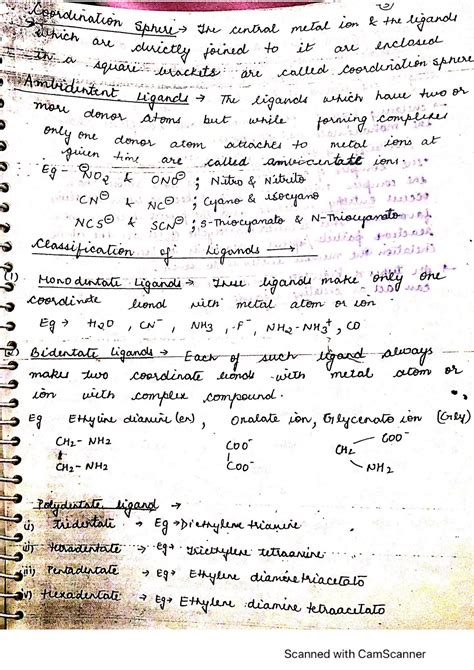 Coordination Sphere → The central metal ion & the ligands
which are directly joined to it are enclosed
in a square brackets are called coordination sphere
Ambidintent Ligands → The ligands which have two or
more donor atoms but while forming complexes
only one donor atom attaches to metal ions at
given time are called ambidentate ions.
Eg - NO2⊖ & ONO⊖ ; Nitro & Nitrito
CN⊖ & NC⊖ ; Cyano & isocyano
NCS⊖ & SCN⊖ ; S-Thiocyanato & N-Thiocyanato
Classification of Ligands →
(1) Monodentate Ligands → These ligands make only one
coordinate bond with metal atom or ion
Eg → H2O , CN⁻ , NH3 , F⁻ , NH2-NH3⁺ , CO
(2) Bidentate ligands → Each of such ligand always
makes two coordinate bonds with metal atom or
ion with complex compound.
Eg Ethylene diamine (en) , Oxalate ion, Glycenato ion (Gly)
CH2 - NH2 COO⁻ CH2 COO⁻
CH2 - NH2 COO⁻ NH2
Polydentate ligand →
i) tridentate → Eg → Diethylene triamine
ii) → Eg → Triethylene tetraamine
iii) Pentadentate → Eg → Ethylene diamine triacetato
iv) Hexadentate → Eg → Ethylene diamine tetraacetato
Scanned with CamScanner